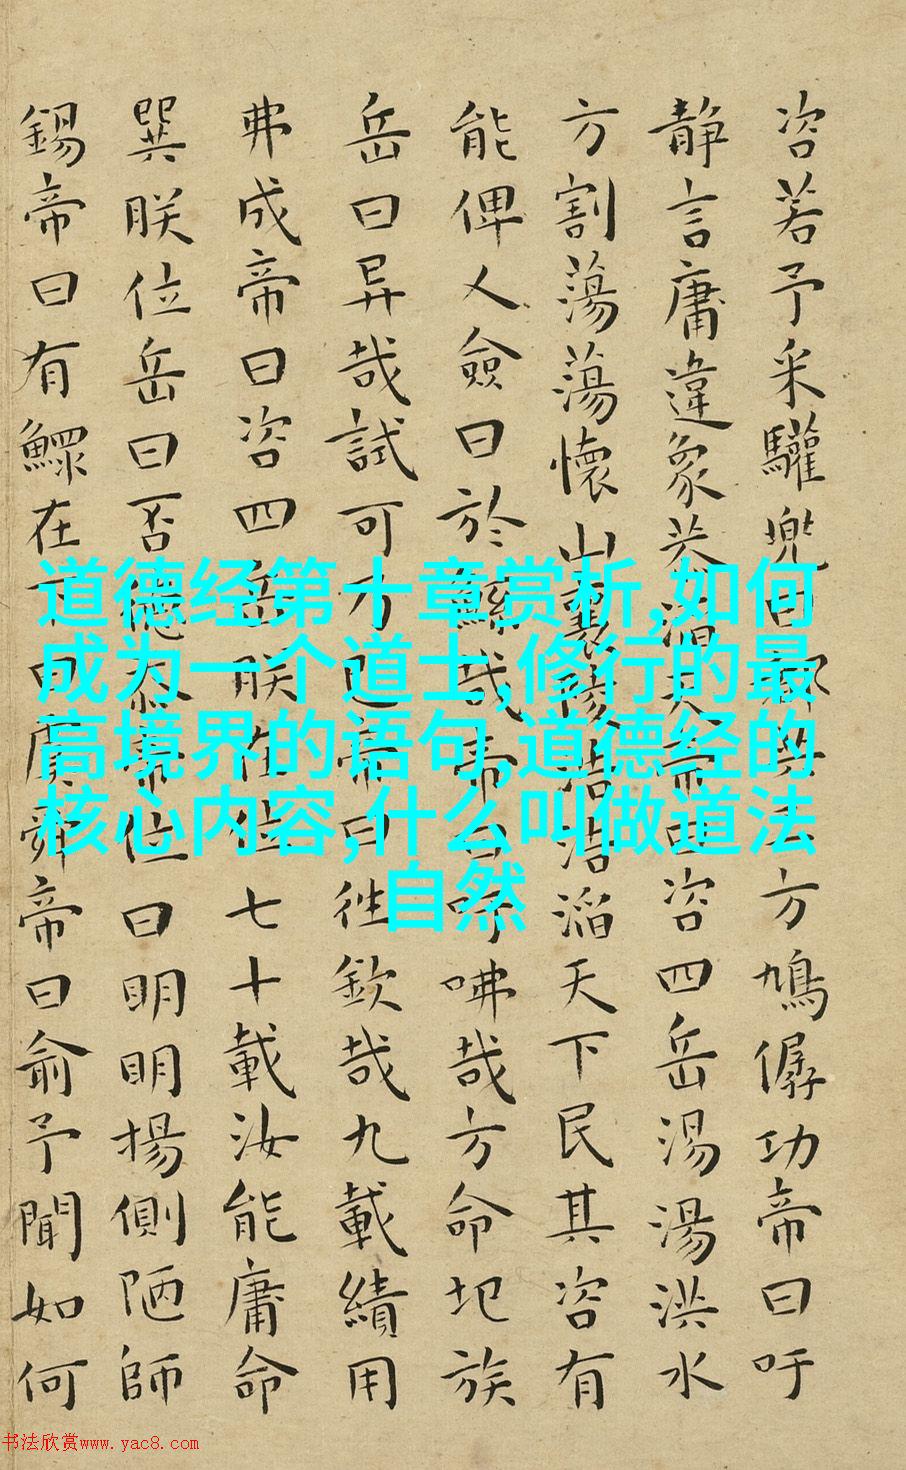 咨若予采驩兜曰都共工方鳩僝功帝曰吁
静言庸違象恭滔天帝曰咨四岳湯湯洪水
方割蕩蕩懷山襄陵浩浩滔天下民其咨有
能俾人僉曰於鯀哉帝曰吁咈哉方命圯族
岳曰异哉試可乃已帝曰往欽哉九載績用
弗成帝曰咨四岳朕在位七十載汝能庸命
巽朕位岳曰否德忝帝位曰明明揚側陋師
錫帝曰有鰥在下曰虞舜帝曰俞予聞如何
道德经第十章赏析,如何
成为一个道士,修行的最
高境界的语句,道德经的
核心内容,什么叫做道法
自然
书法欣赏www.yac8.com